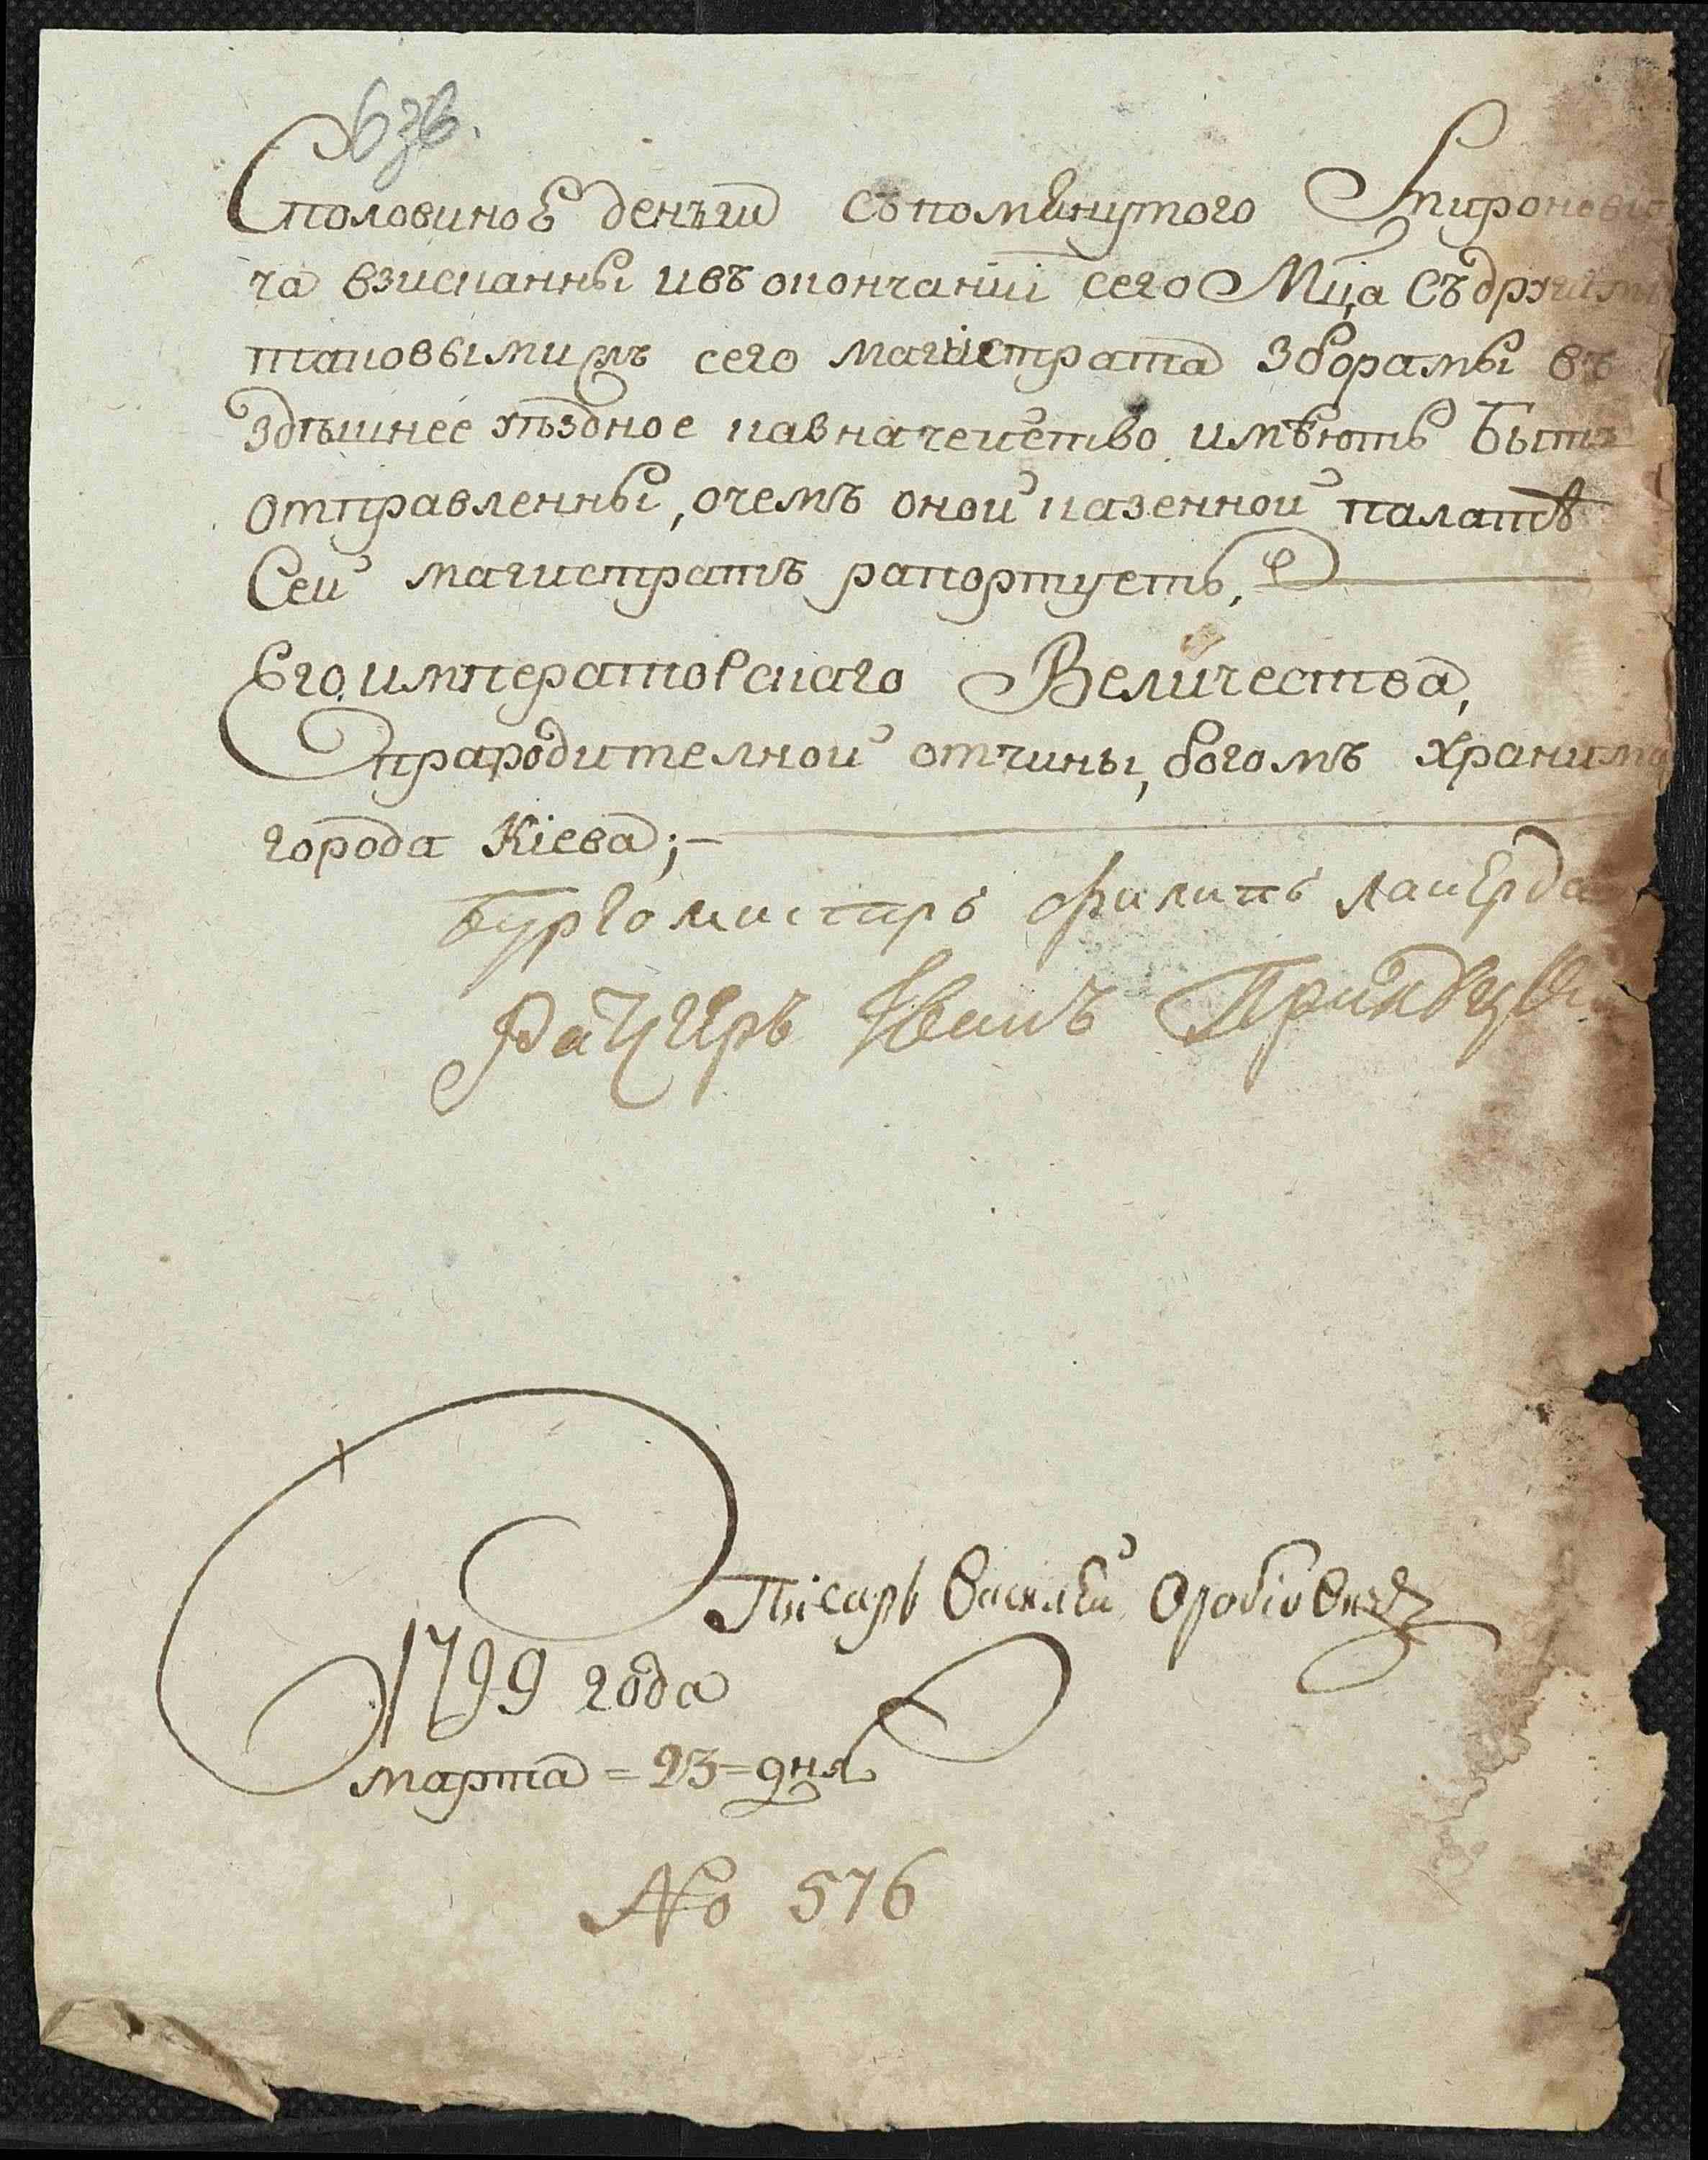 63в.
Споловиною денги съ помянутого Спиронови
ча взисканны и въ окончаніи сего Мца Съ другими
таковыми жъ сего магистрата зборамы въ
здѣшнее уѣздное казначейство имѣютъ быть
отправленны, о чемъ оной казенной палатѣ
Сей магистратъ рапортуетъ,
Его императорскаго Величества,
прародителной отчины, богомъ хранима
города Кіева;-
бургомистръ Филипъ Лакерда
Рацгеръ Иванъ
Писарь Василей
1799 года
марта = 23 = дня
No 576